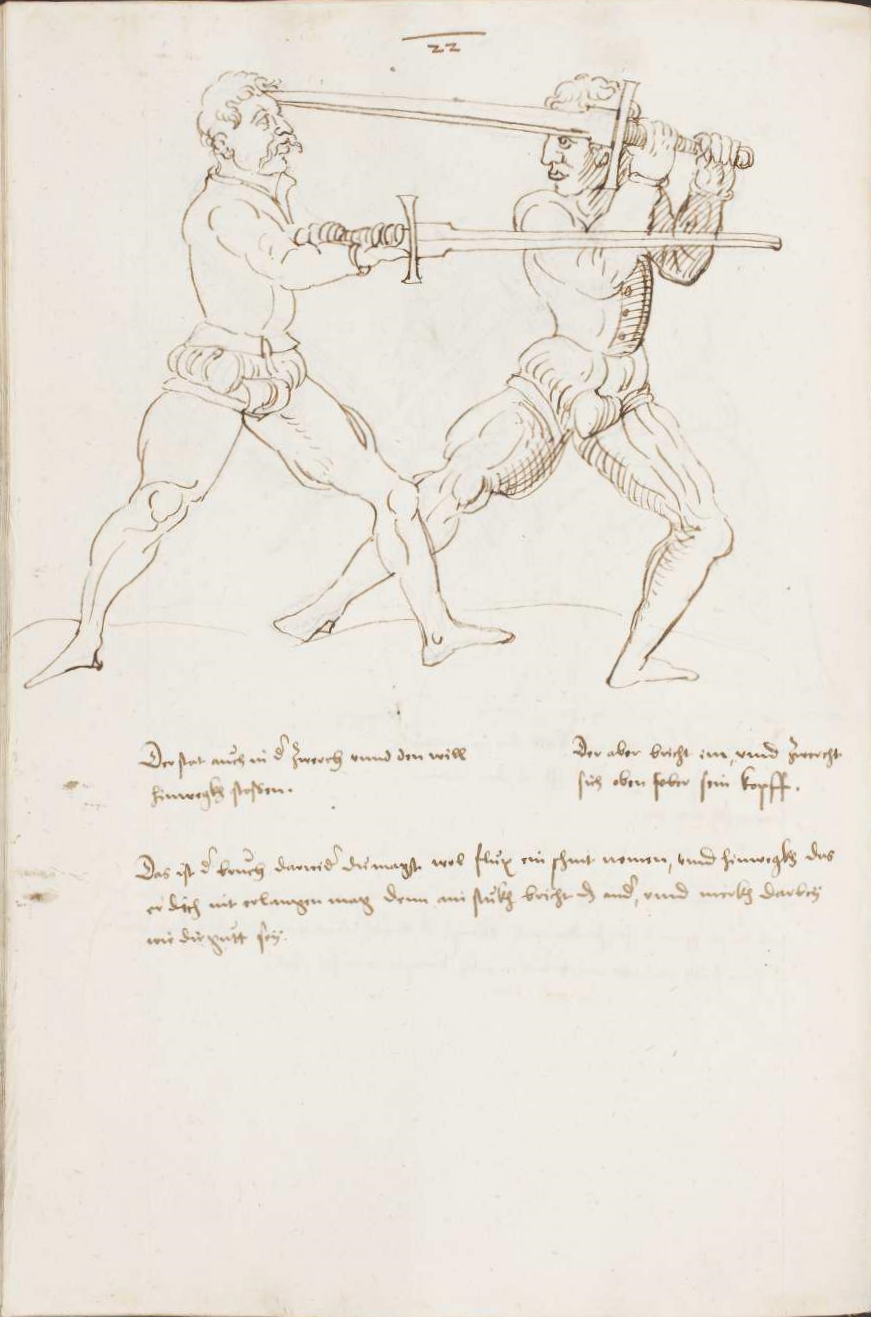 22
Der stat auch in dʾ zwerch unnd den will
hinwegkh stossen.
Der aber bricht im, unnd zwercht
sich oben seber sein kopff.
Das ist dʾ bruch darwidʾ du magst wol flux ein schnit nemen, unnd hinwegkh das
er dich nit erlangen mag denn ain stukh bricht dz andʾ, unnd merkh darbey
wie dir gutt sey.